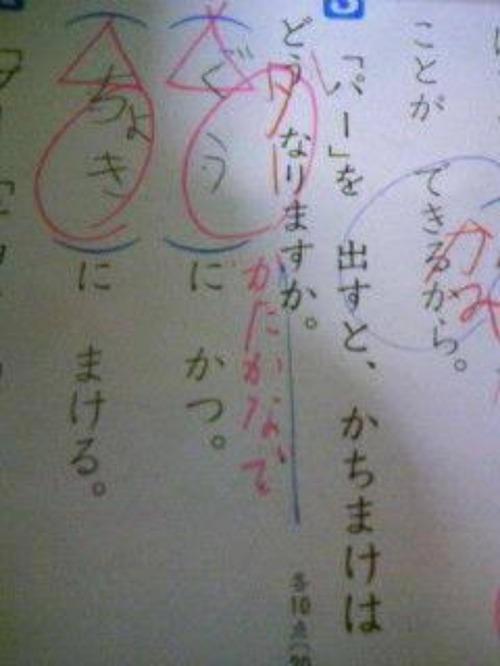 ことが できるから。
かみ
3
「パー」を 出すと、かちまけは
どう なりますか。
各10点
かたかなで
ぐう
に かつ。
ちょき
に まける。